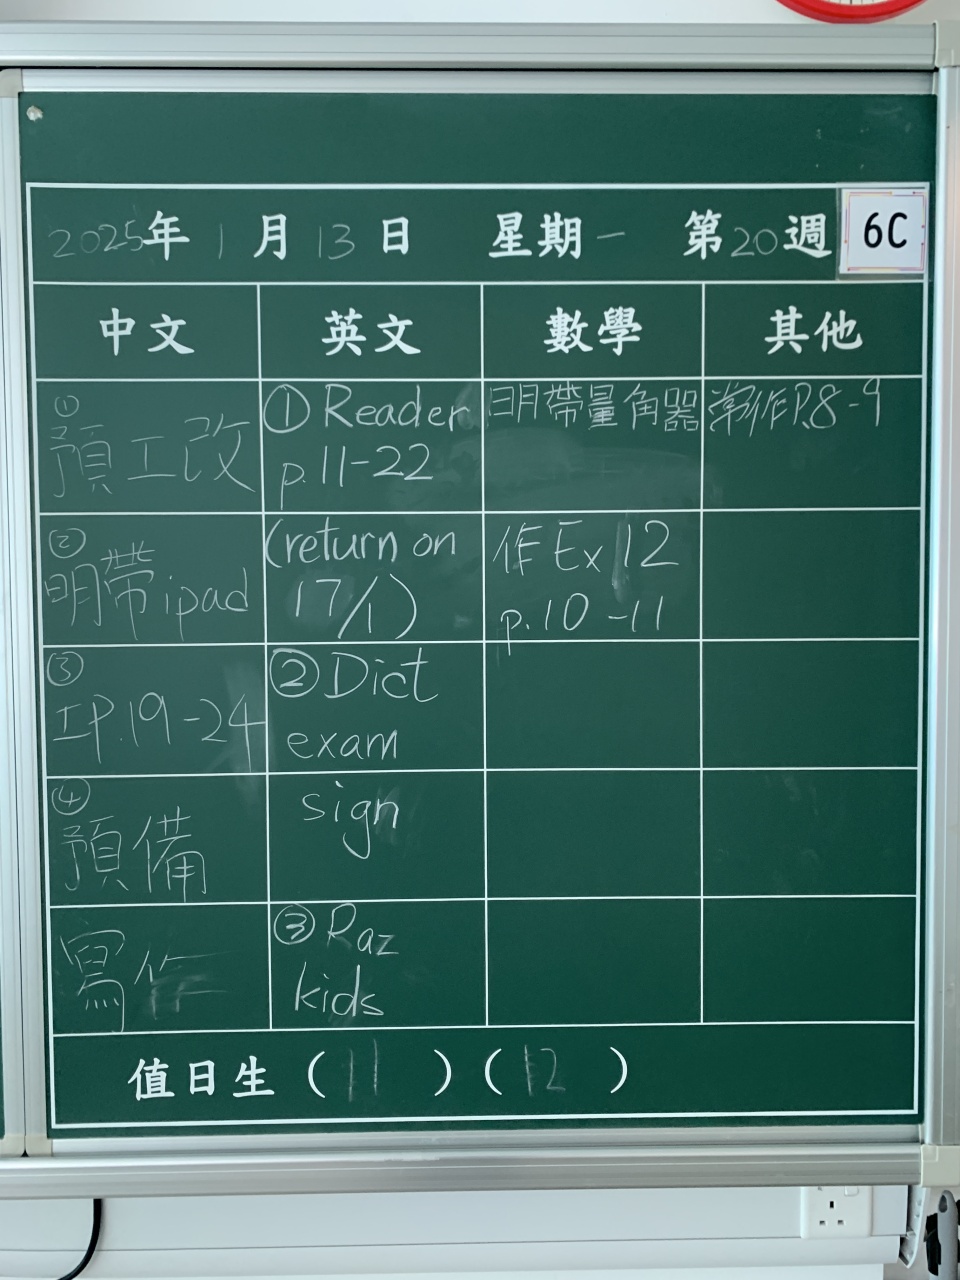 2025年1月13日 星期一 第20週 6C
中文 英文 數學 其他
①
預工改
②
明帶ipad
③
工P.19-24
④
預備
寫作
① Reader
p.11-22
(return on
17/1)
② Dict
exam
sign
③ Raz
kids
明帶量角器
作Ex 12
p.10-11
常作P.8-9
值日生(11)(12)